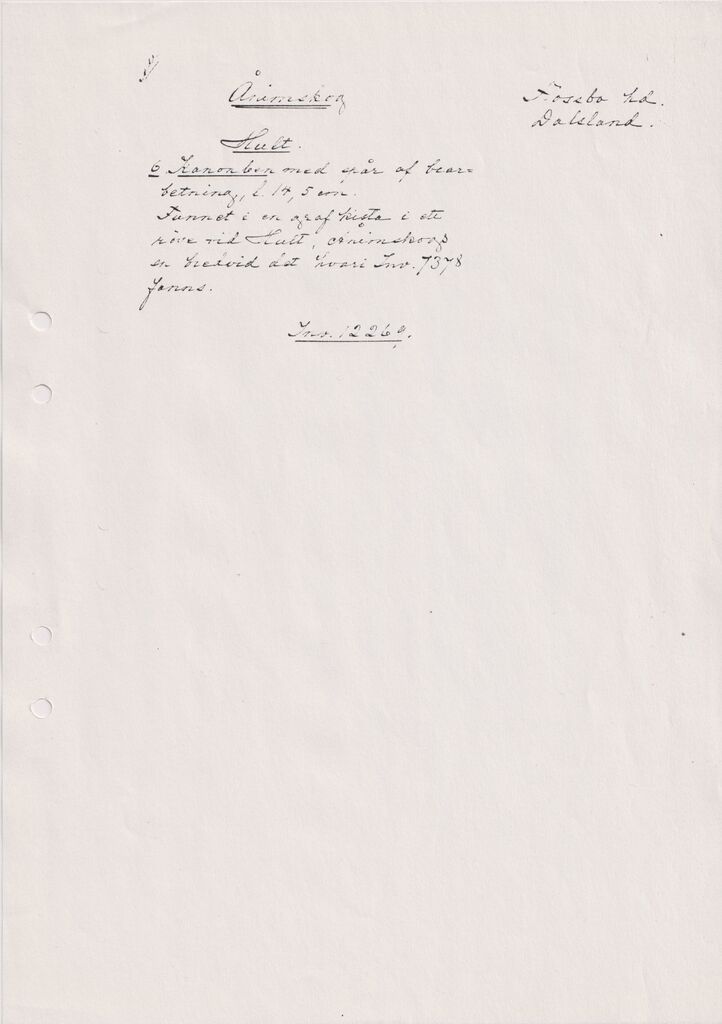 Ånimskog
Tössbo hd.
Dalsland.
Hult.
6 Kanonben med spår af bear=
betning, l. 14,5 cm.
Funnet i en graf kista i ett
röse vid Hult, Ånimskogs
en bredvid det hvari Inv. 7378
fanns.
Inv. 12269.